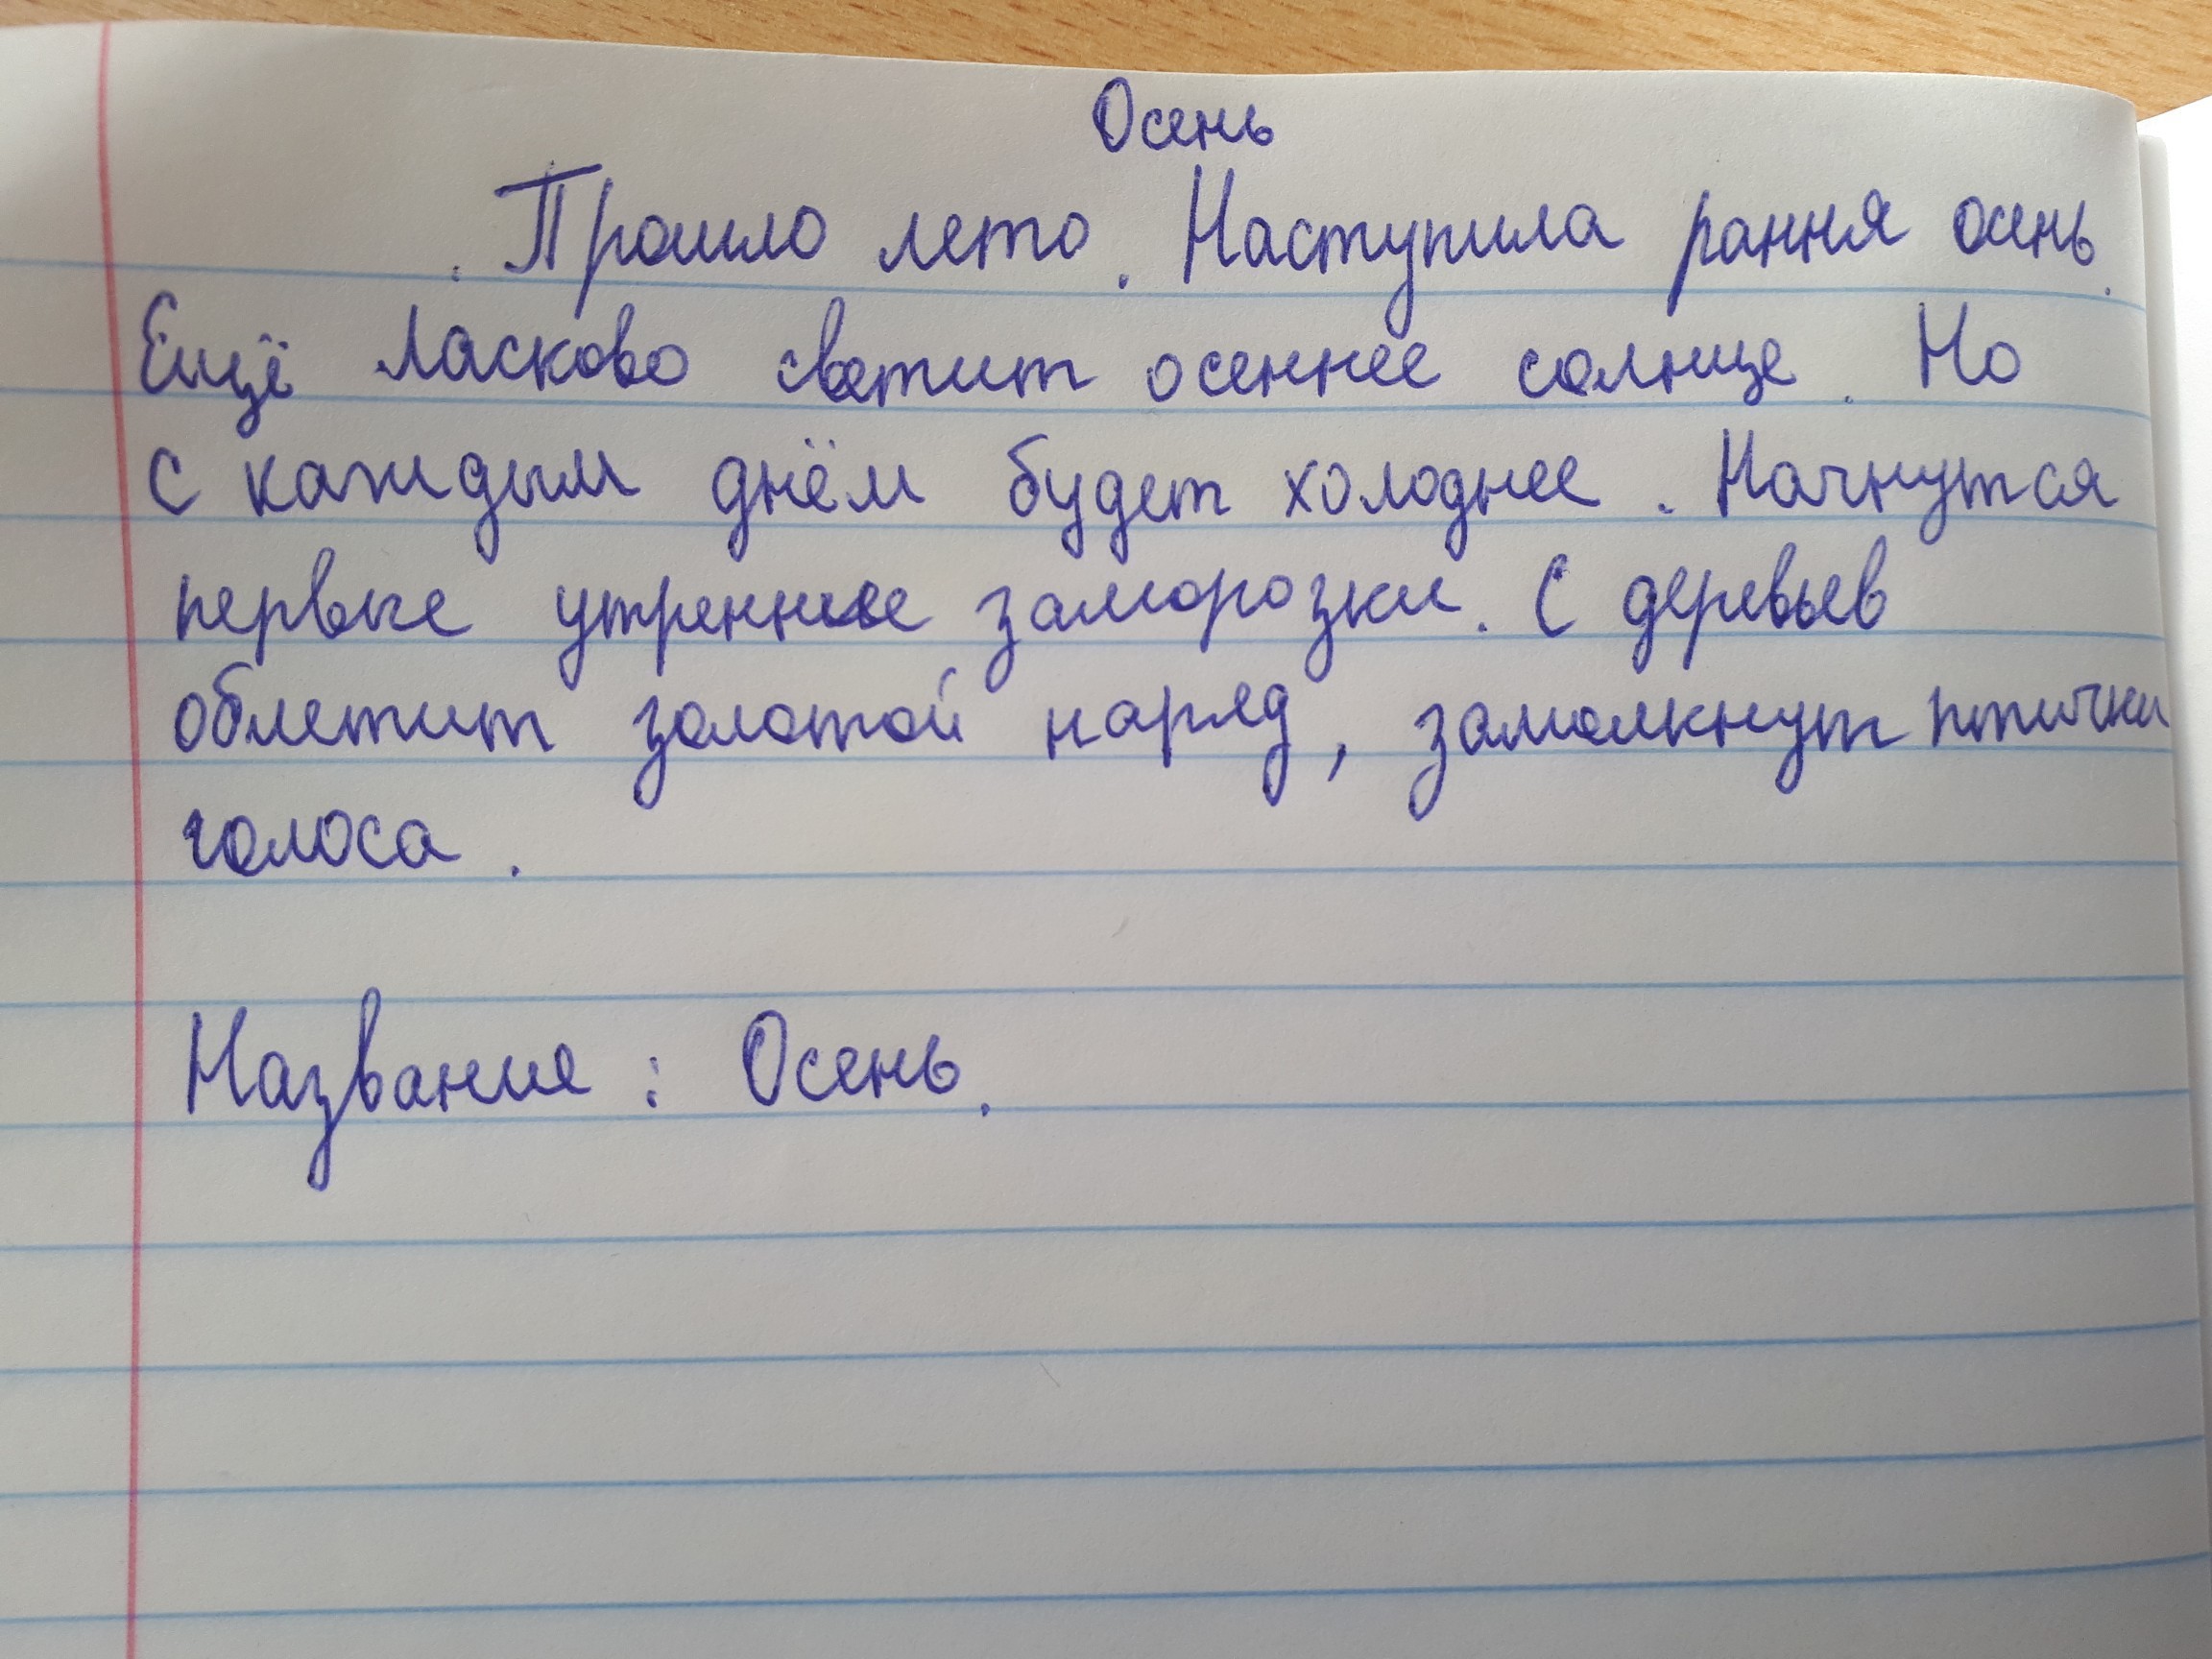 Осень
. Прошло лето. Наступила рання осень.
Ещё ласково светит осеннее солнце. Но
с каждым днём будет холоднее. Начнутся
первые утренние заморозки. С деревьев
облетит золотой наряд, замолкнут птички
голоса.
Название: Осень.